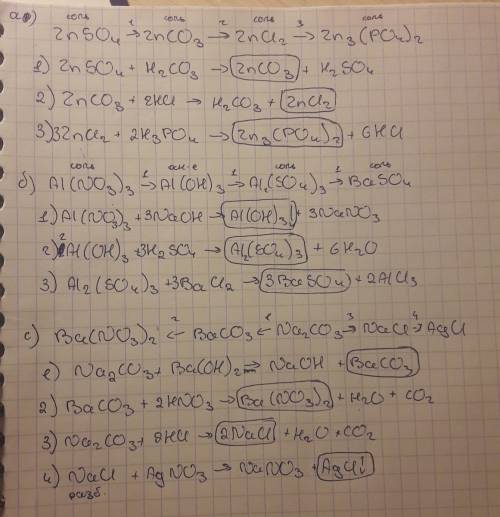 а) соль соль соль соль
ZnSO₄ →¹ ZnCO₃ →² ZnCl₂ →³ Zn₃(PO₄)₂
1) ZnSO₄ + H₂CO₃ → ZnCO₃ + H₂SO₄
2) ZnCO₃ + 2HCl → H₂CO₃ + ZnCl₂
3) 3ZnCl₂ + 2H₃PO₄ → Zn₃(PO₄)₂ + 6HCl
соль осн-е соль соль
б) Al(NO₃)₃ →¹ Al(OH)₃ →¹ Al₂(SO₄)₃ →¹ BaSO₄
1) Al(NO₃)₃ + 3NaOH → Al(OH)₃↓ + 3NaNO₃
2) 2Al(OH)₃ + 3H₂SO₄ → Al₂(SO₄)₃ + 6H₂O
3) Al₂(SO₄)₃ + 3BaCl₂ → 3BaSO₄ + 2AlCl₃
с) Ba(NO₃)₂ ←² BaCO₃ ←¹ Na₂CO₃ →³ NaCl →⁴ AgCl
1) Na₂CO₃ + Ba(OH)₂ → NaOH + BaCO₃
2) BaCO₃ + 2HNO₃ → Ba(NO₃)₂ + H₂O + CO₂
3) Na₂CO₃ + HCl → 2NaCl + H₂O + CO₂
4) NaCl + AgNO₃ → NaNO₃ + AgCl↓
разб.